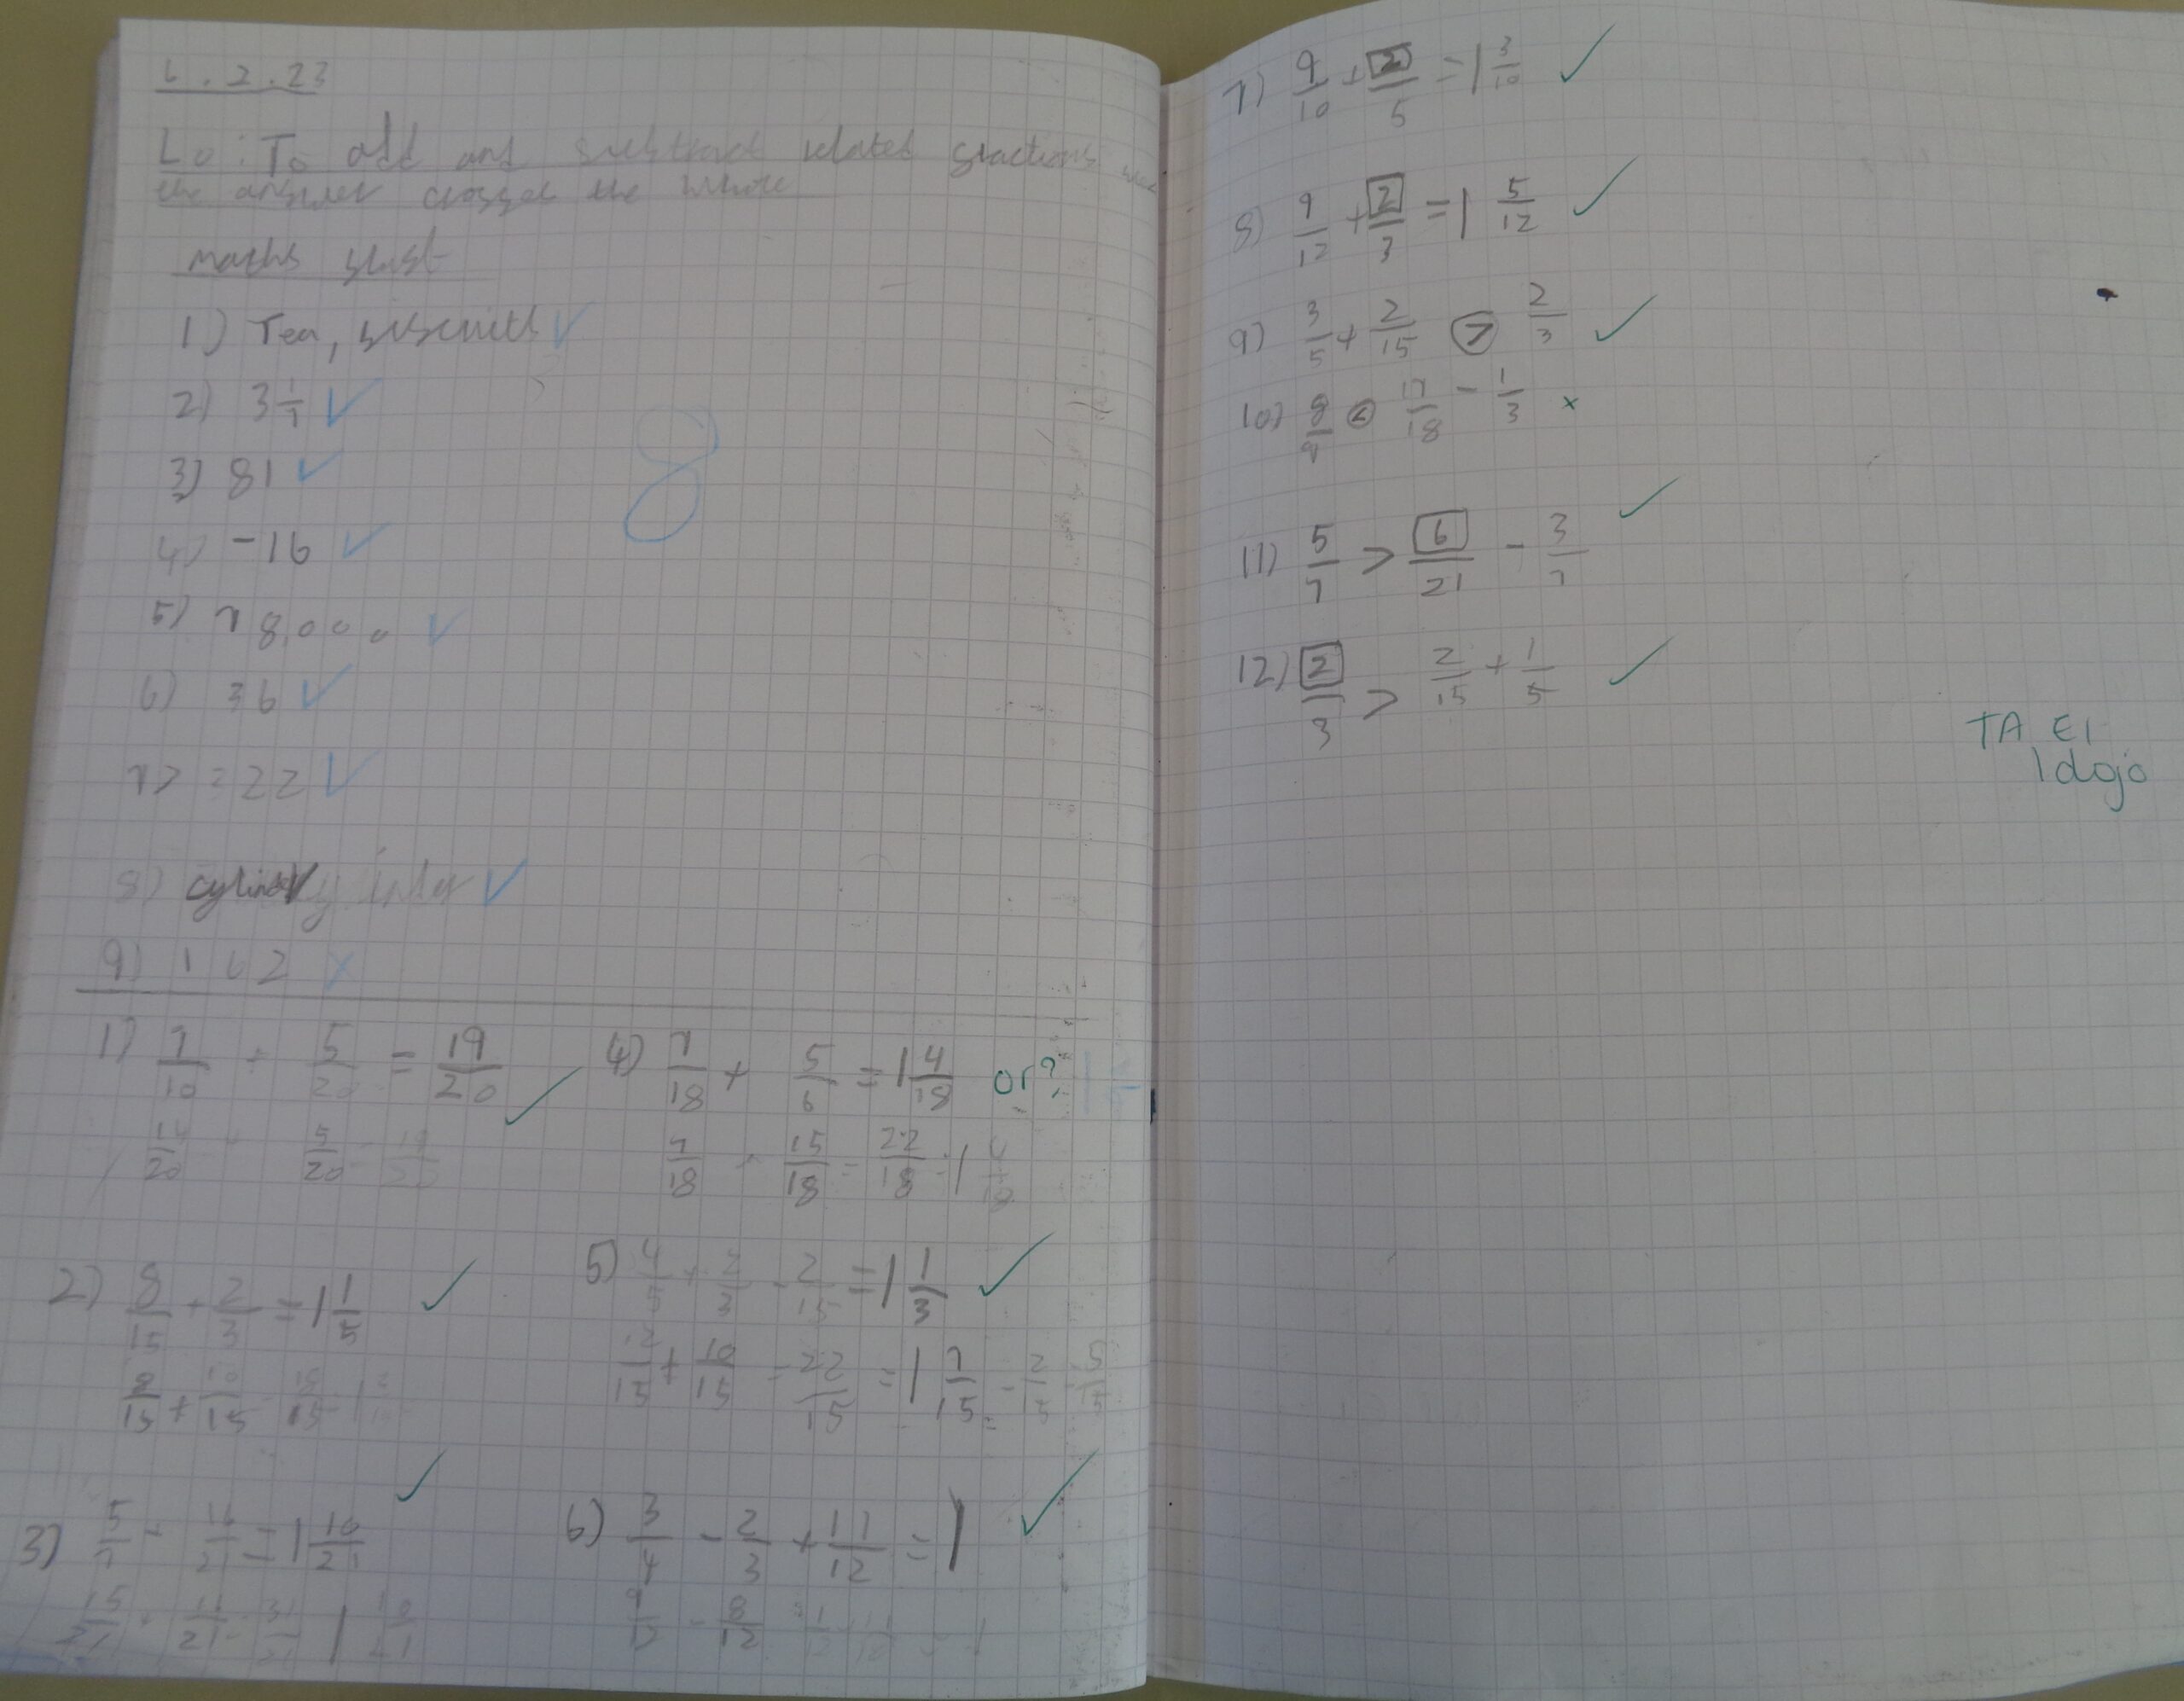 6.2.23
Lo: To add and subtract related fractions
the answer crosses the whole
maths
1) Tea,
2) 3 1/7
3) 81
4) -16
5) 78,000
6) 36
7) = 22
8)
9) 162
8
1) 7/10 + 5/20 = 19/20
14/20 + 5/20 = 19/20
2) 8/15 + 2/3 = 1 1/5
8/15 + 10/15 = 18/15 = 1 3/15
3) 5/7 + 16/21 = 1 10/21
15/21 + 16/21 = 31/21 1 10/21
4) 7/18 + 5/6 = 1 4/18 or?
7/18 + 15/18 = 22/18 = 1 4/18
5) 4/5 + 2/3 - 2/15 = 1 1/3
12/15 + 10/15 = 22/15 = 1 7/15 - 2/15 = 5/15
6) 3/4 - 2/3 + 11/12 = 1
9/12 - 8/12 = 1/12 + 11/12 = 1
7) 9/10 + 2/5 = 1 3/10
8) 9/12 + 2/3 = 1 5/12
9) 3/5 + 2/15 > 2/3
10) 8/9 < 17/18 - 1/3
11) 5/7 > 6/21 - 3/7
12) 2/3 > 2/15 + 1/5
TA E1
1 dojo